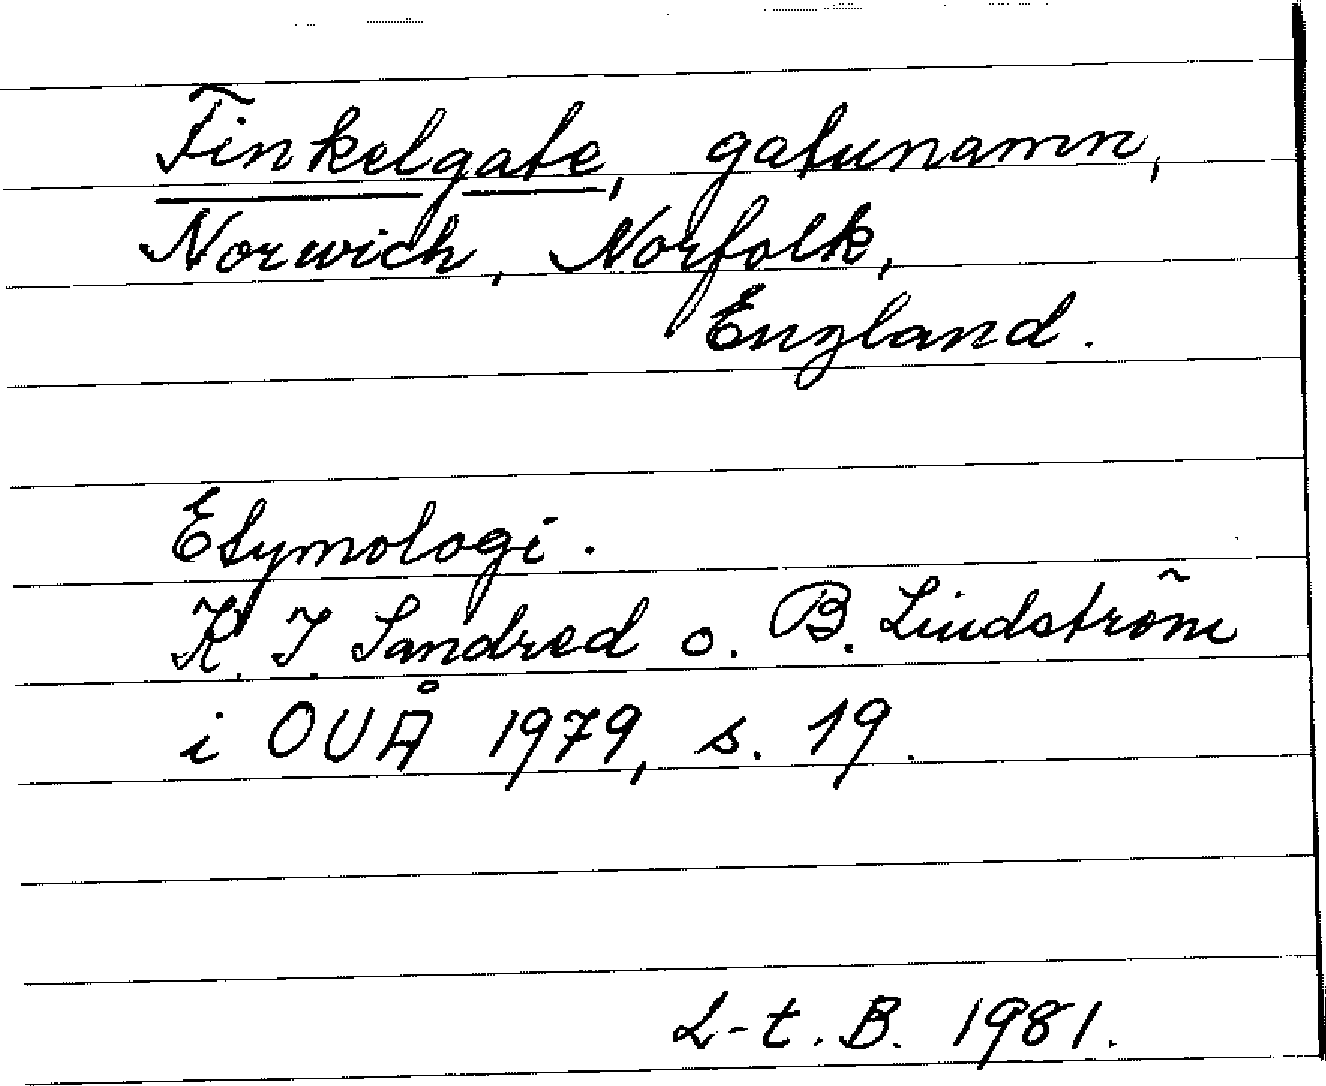 Finkelgate, gatunamn,
Norwich, Norfolk,
England.
Etymologi.
K. I. Sandred o. B. Lindström
i OUÅ 1979, s. 19.
L-t. B. 1981.